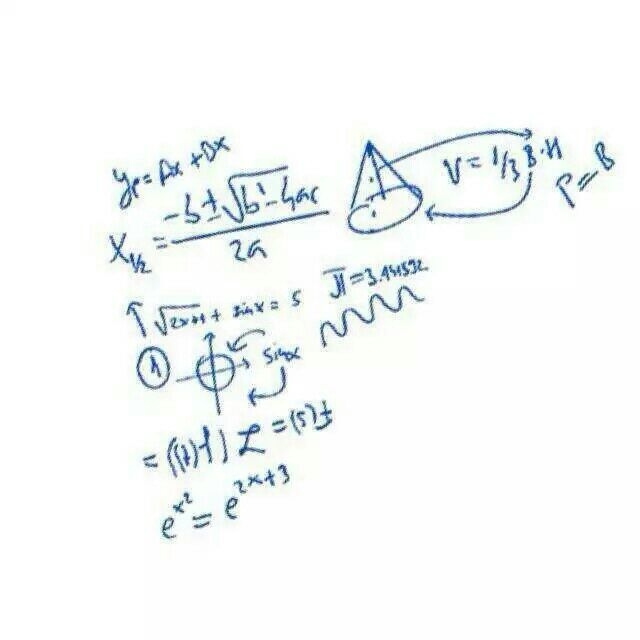 yₚ = Ax + Bx
X₁/₂ = (-b ± √(b² - 4ac)) / 2a
V = 1/3 B · H
P = B
↑ √2x+1 + sin x = 5
π = 3.141592
① sin x
= (f(t)) L = (s) f
e^x² = e^2x+3